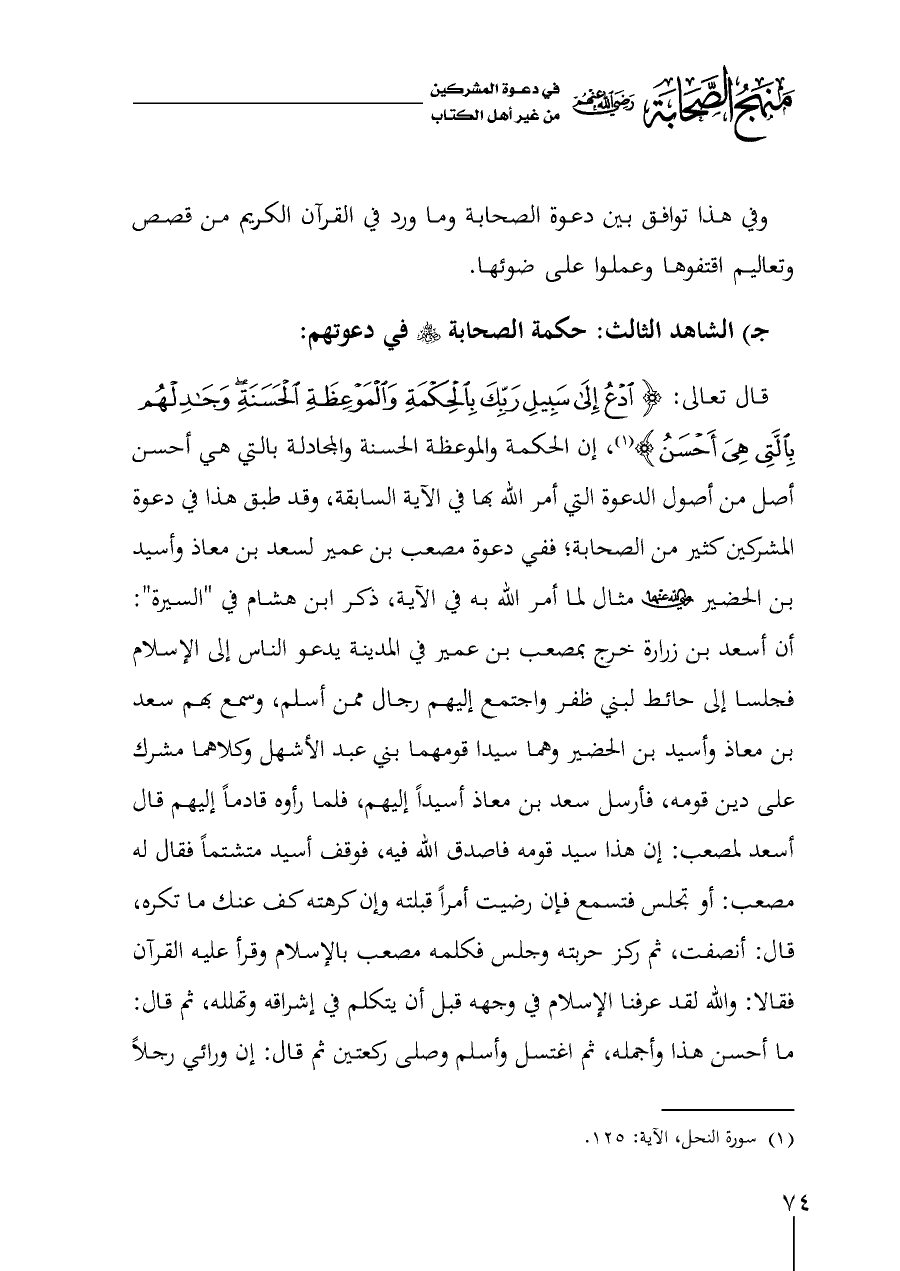 منهج الصحابة رضي الله عنهم في دعوة المشركين
من غير أهل الكتاب
وفي هذا توافق بين دعوة الصحابة وما ورد في القرآن الكريم من قصص
وتعاليم اقتفوها وعملوا على ضوئها.
ج) الشاهد الثالث: حكمة الصحابة ﷺ في دعوتهم:
قال تعالى: ﴿ ٱدْعُ إِلَىٰ سَبِيلِ رَبِّكَ بِٱلْحِكْمَةِ وَٱلْمَوْعِظَةِ ٱلْحَسَنَةِ ۖ وَجَـٰدِلْهُم
بِٱلَّتِى هِىَ أَحْسَنُ ﴾(١)، إن الحكمة والموعظة الحسنة والمجادلة بالتي هي أحسن
أصل من أصول الدعوة التي أمر الله بها في الآية السابقة، وقد طبق هذا في دعوة
المشركين كثير من الصحابة؛ ففي دعوة مصعب بن عمير لسعد بن معاذ وأسيد
بن الحضير رضي الله عنهما مثال لما أمر الله به في الآية، ذكر ابن هشام في "السيرة":
أن أسعد بن زرارة خرج بمصعب بن عمير في المدينة يدعو الناس إلى الإسلام
فجلسا إلى حائط لبني ظفر واجتمع إليهم رجال ممن أسلم، وسمع بهم سعد
بن معاذ وأسيد بن الحضير وهما سيدا قومهما بني عبد الأشهل وكلاهما مشرك
على دين قومه، فأرسل سعد بن معاذ أسيداً إليهم، فلما رأوه قادماً إليهم قال
أسعد لمصعب: إن هذا سيد قومه فاصدق الله فيه، فوقف أسيد متشتماً فقال له
مصعب: أو تجلس فتسمع فإن رضيت أمراً قبلته وإن كرهته كف عنك ما تكره،
قال: أنصفت، ثم ركز حربته وجلس فكلمه مصعب بالإسلام وقرأ عليه القرآن
فقالا: والله لقد عرفنا الإسلام في وجهه قبل أن يتكلم في إشراقه وتهلله، ثم قال:
ما أحسن هذا وأجمله، ثم اغتسل وأسلم وصلى ركعتين ثم قال: إن ورائي رجلاً
(١) سورة النحل، الآية: ١٢٥.
٧٤